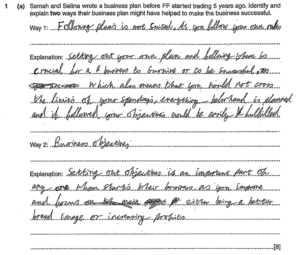 1 (a) Samah and Selina wrote a business plan before FF started trading 5 years ago. Identify and
explain two ways their business plan might have helped to make the business successful.
Way 1: Following plans is not suitable, as you follow your own rules
Explanation: Setting out your own plan and following them is
crucial for a business to survive or to be successful,
which also means that you would not cross
the limits of your spendings, everything beforehand is planned
and if followed your objectives would be easily fulfilled
Way 2: Business objectives
Explanation: Setting out objectives is an important part of
any one whom starts their business as you improve
and focus on either being a better
brand image or increasing profits
[8]